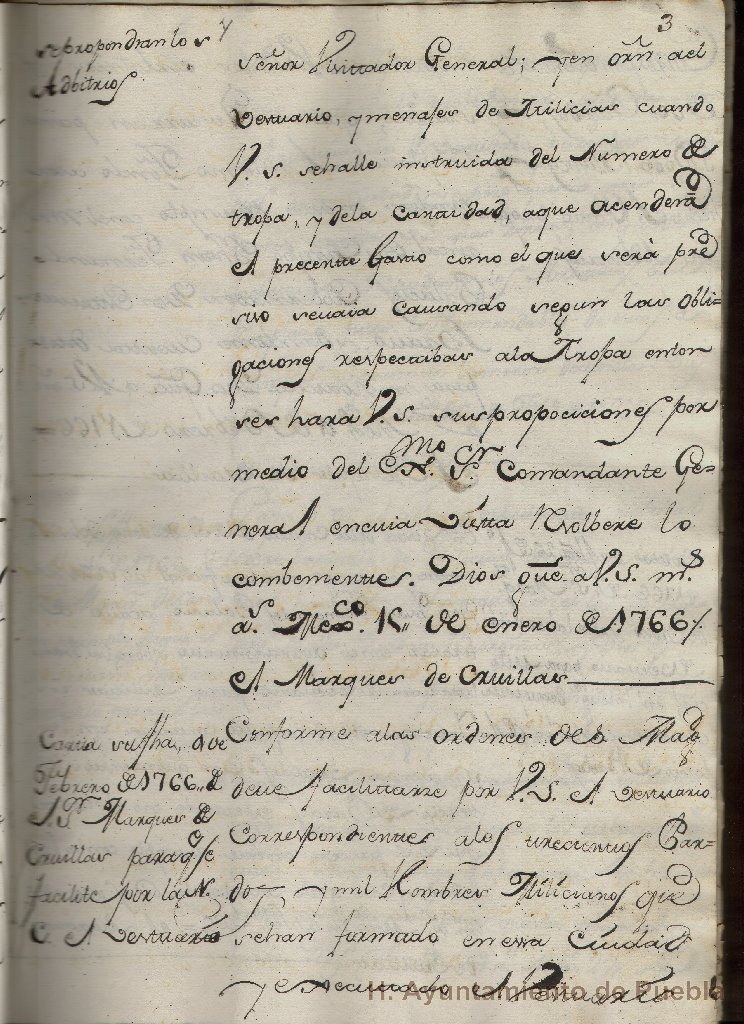 3
se propondran los
Adbitrios
Señor Vicittador General; y en orñ. ael
Vestuario, y menajes de Milicias cuando
V. S. se halle instruida del Numero de
tropa, y dela Cantidad, aque acenderà
el precente Gasto como el que serà pre
siso sevaia Causando segun las obli=
gaciones respectibas ala Tropa enton
ses hara V. S. sus propociciones por
medio del Exmo. Sr. Comandante Ge=
neral encuia Vista Resolbere lo
combenientte. Dios gue. a V. S. ms.
as. Mexco. 15 de enero de 1766,/
el Marques de Cruillas
Carta su fha, 9 de
Febrero de 1766, del
el Sr. Marques de
Cruillas para qe se
facilite por la N.
C. el Vestuario
Conforme alas ordenes des. Magd
deve facilitarse por V. S. el Vestuario
Correspondiente a los trecientos Par-
dos, y mil Hombres Milicianos que
se han formado en essa Ciudad
y executado el
H. Ayuntamiento de Puebla